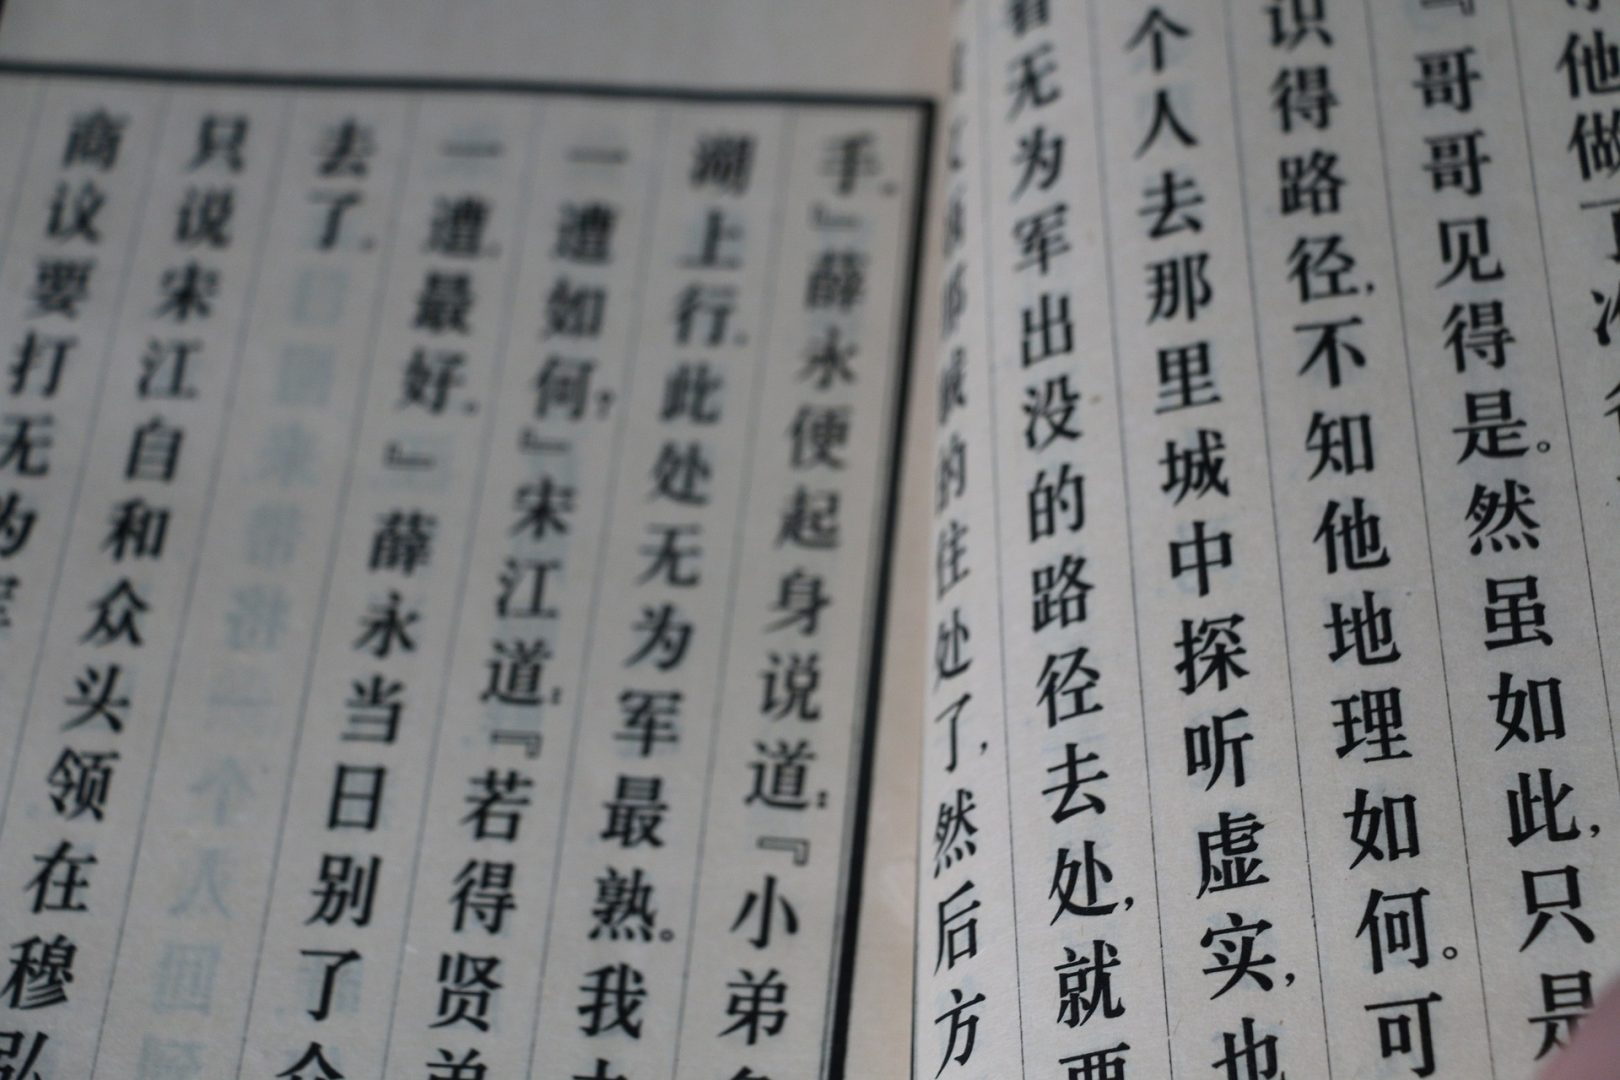 他做了
『哥哥见得是。然虽如此，只是
识得路径，不知他地理如何。可
个人去那里城中探听虚实，也
无为军出没的路径去处，就要
的住处了，然后方
手。』薛永便起身说道：『小弟
湖上行。此处无为军最熟。我
一遭如何？』宋江道：『若得贤弟
一遭。最好。』薛永当日别了
去了。
只说宋江自和众头领在穆弘
商议要打无为军